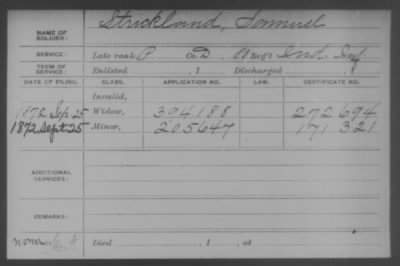 NAME OF SOLDIER: Strickland, Samuel
SERVICE: Late rank P Co. D Reg't Ind. Inf.
TERM OF SERVICE: Enlisted , 1 Discharged , 1
DATE OF FILING. CLASS. APPLICATION NO. LAW. CERTIFICATE NO.
Invalid,
Sep 25 Widow, 394188 272694
1872 Sept 25 Minor, 205647 171321
ADDITIONAL SERVICES:
REMARKS:
Died , 1 , at